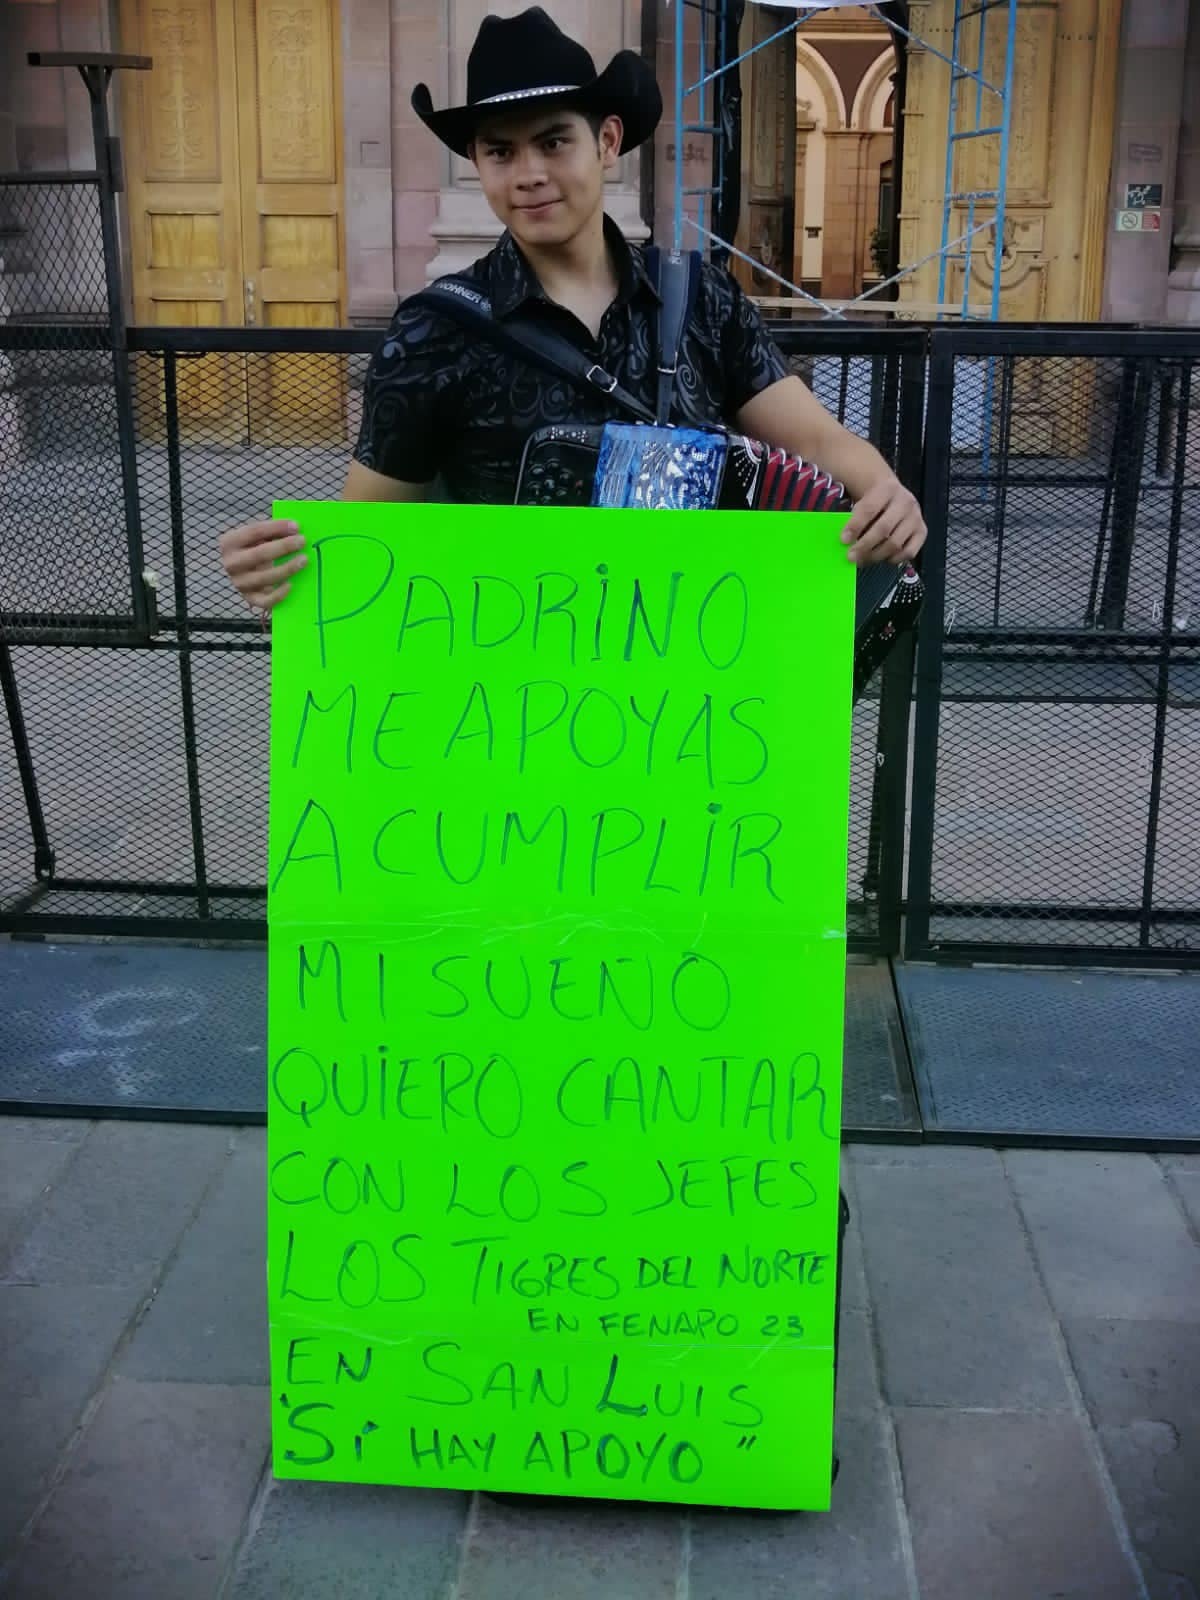 HOHNER
PADRINO
ME APOYAS
A CUMPLIR
MI SUEÑO
QUIERO CANTAR
CON LOS JEFES
LOS TIGRES DEL NORTE
EN FENAPO 23
EN SAN LUIS
"Sí HAY APOYO"